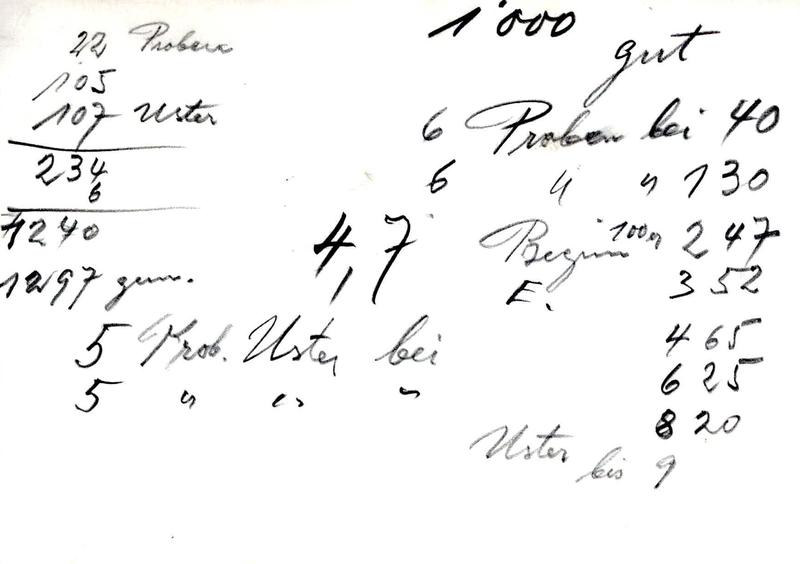 22 Proben
105
107 Uster
234
6
1240
1297 gem.
4,7
5 Prob. Uster bei
5 " " "
1'000
gut
6 Proben bei 40
6 " " 130
Beginn 100er 247
E. 352
465
625
820
Uster
bis 9